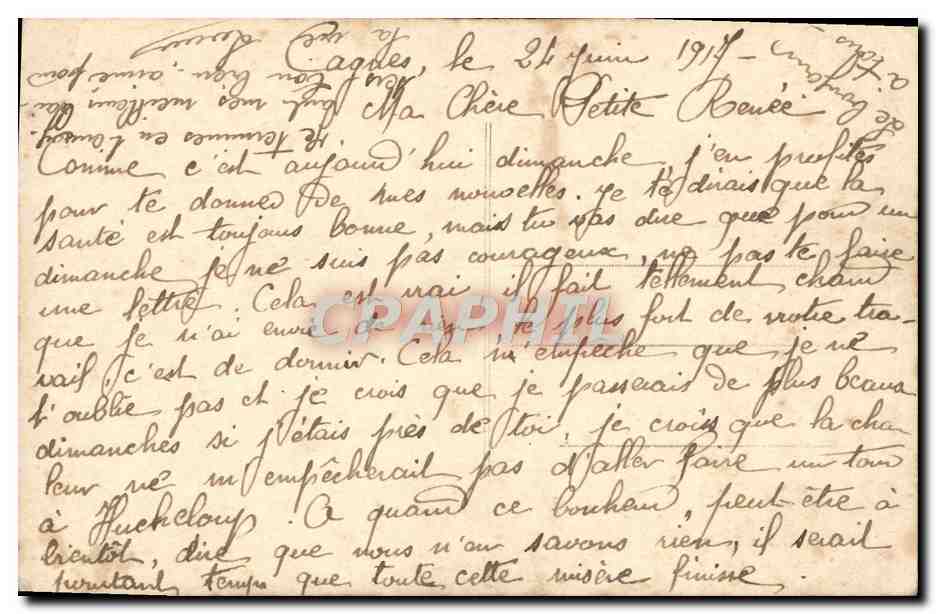 Cagnes, le 24 Juin 1917 -
Ma Chère Petite Renée
Comme c'est aujourd'hui dimanche, j'en profite
pour te donner de mes nouvelles. Je te dirais que la
santé est toujours bonne, mais tu vas dire que pour un
dimanche je ne suis pas courageux, ne pas te faire
une lettre. Cela est vrai il fait tellement chaud
que je n'ai envie de rien, le plus fort de notre tra-
vail, c'est de dormir. Cela n'empêche que je ne
t'oublie pas et je crois que je passerais de plus beaux
dimanches si j'étais près de toi, je crois que la cha
leur ne m'empêcherait pas d'aller faire un tour
à Hucheloup. A quand ce bonheur, peut-être à
bientôt, dire que nous n'en savons rien, il serait
pourtant temps que toute cette misère finisse.
Je termines en t'envoy-
ant mes meilleurs bai-
sers ton bien-aimé pour
la vie
de bonjour
CPAPHIL